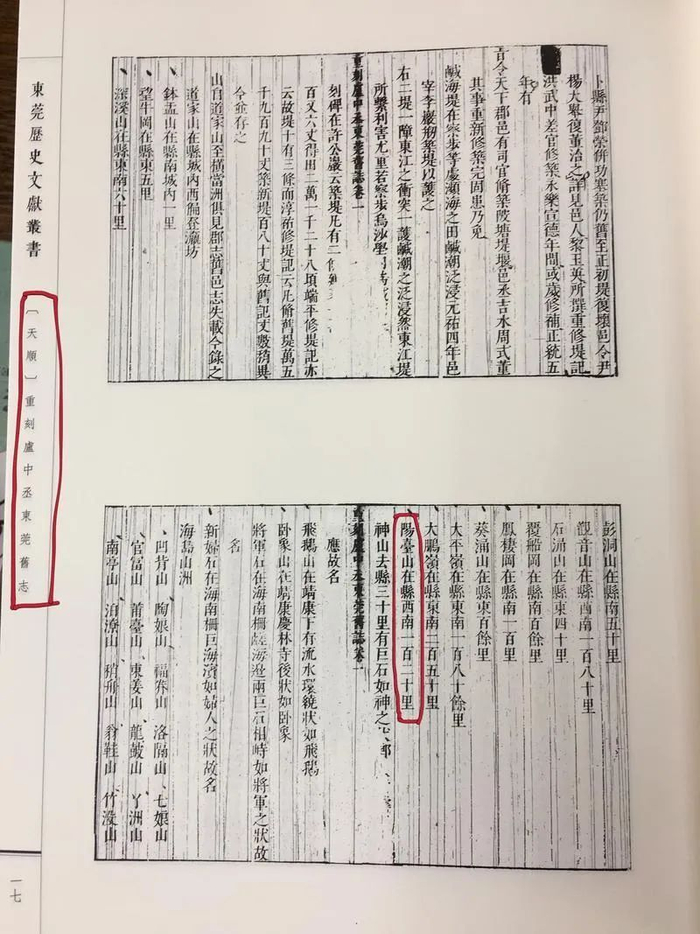 卜縣尹鄧榮併功寒築仍舊至正初堤復壞邑令尹
楊大舉復董治之詳見邑人黎玉英所撰重修堤記
洪武中差官修築永樂宣德年間或歲修補正統五
年有
旨令天下郡邑有司官脩築陂塘堤堰邑丞吉水周式董
其事重新修築完固患乃免
鹹海堤在寮步等處瀕海之田鹹潮泛浸元祐四年邑
宰李巖剏築堤以護之
右二堤一障東江之衝突一護鹹潮之泛浸然東江堤
所繫利害尤重若寮步烏沙學
重刻盧中丞東莞舊誌卷一
刻碑在許公巖云築堤凡有二條
百又六丈得田二萬一千二十八頃端平修堤記亦
云故堤十有三條而淳祐修堤記云凡脩舊堤萬五
千九百九十丈築新堤百八十丈與舊記丈數稍異
今並存之
山自道家山至橫當洲俱見郡志舊邑志失載今錄之
道家山在縣城內西隅登瀛坊
鉢盂山在縣南城內一里
望牛岡在縣東五里
深溪山在縣東南六十里
彭洞山在縣南五十里
觀音山在縣酉南一百八十里
石涌山在縣東四十里
覆船岡在縣南百餘里
鳳棲岡在縣南一百里
葵涌山在縣東百餘里
大平嶺在縣東南一百八十餘里
大鵬嶺在縣東南二百五十里
陽臺山在縣西南一百二十里
神山去縣三十里有巨石如神之
重刻盧中丞東莞舊誌卷一
應故名
飛鵝山在靖康下有流水環繞狀如飛鵝
卧象山在靖康慶林寺後狀如卧象
將軍石在海南柵海邊兩巨石相峙如將軍之狀故
名
新婦石在海南柵巨海濱如婦人之狀故名
海島山洲
凹背山 陶娘山 福奔山 洛隔山 七娘山
官富山 莆臺山 東姜山 龍皷山 丫洲山
南亭山 泊潦山 稍舟山 翁鞋山 竹沒山
東莞歷史文獻叢書
〔天順〕重刻盧中丞東莞舊志
一七